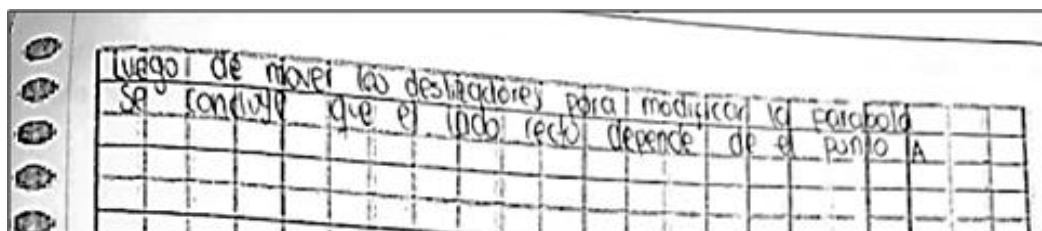 luego de mover los deslizadores para modificar la parabola
se concluye que el lado recto depende de el punto A